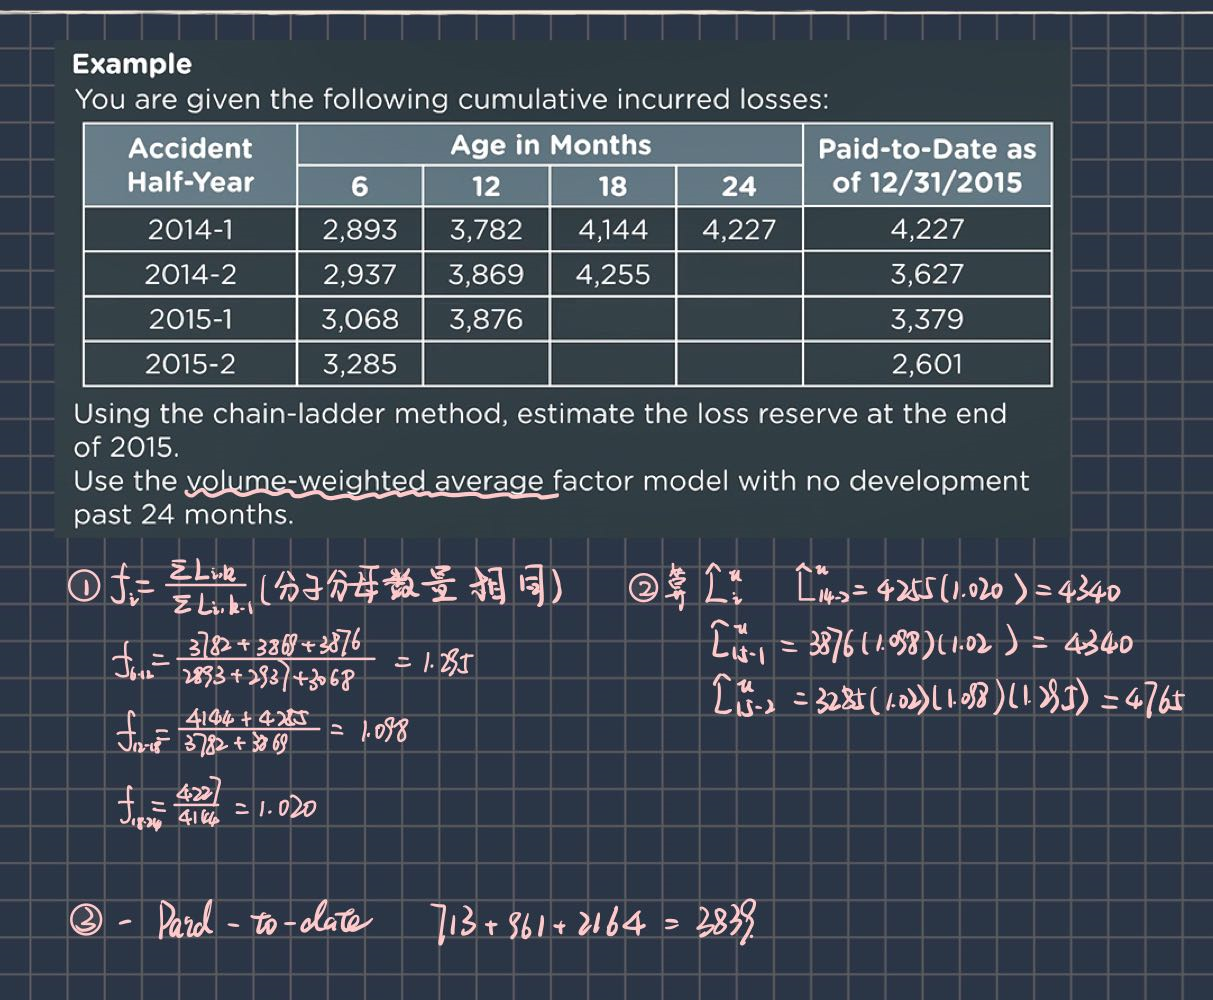 Example
You are given the following cumulative incurred losses:
Accident Half-Year | Age in Months | Paid-to-Date as of 12/31/2015
6 | 12 | 18 | 24
2014-1 | 2,893 | 3,782 | 4,144 | 4,227 | 4,227
2014-2 | 2,937 | 3,869 | 4,255 | | 3,627
2015-1 | 3,068 | 3,876 | | | 3,379
2015-2 | 3,285 | | | | 2,601
Using the chain-ladder method, estimate the loss reserve at the end
of 2015.
Use the volume-weighted average factor model with no development
past 24 months.
① f_i = ΣL_{i,k} / ΣL_{i,k-1} (分子分母数量相同)
f_{6-12} = (3782+3869+3876) / (2893+2937+3068) = 1.295
f_{12-18} = (4144+4255) / (3782+3869) = 1.098
f_{18-24} = 4227 / 4144 = 1.020
② 算 L̂_i^u L̂_{14-2}^u = 4255(1.020) = 4340
L̂_{15-1}^u = 3876(1.098)(1.02) = 4340
L̂_{15-2}^u = 3285(1.02)(1.098)(1.295) = 4765
③ - Paid-to-date 713+961+2164 = 3839